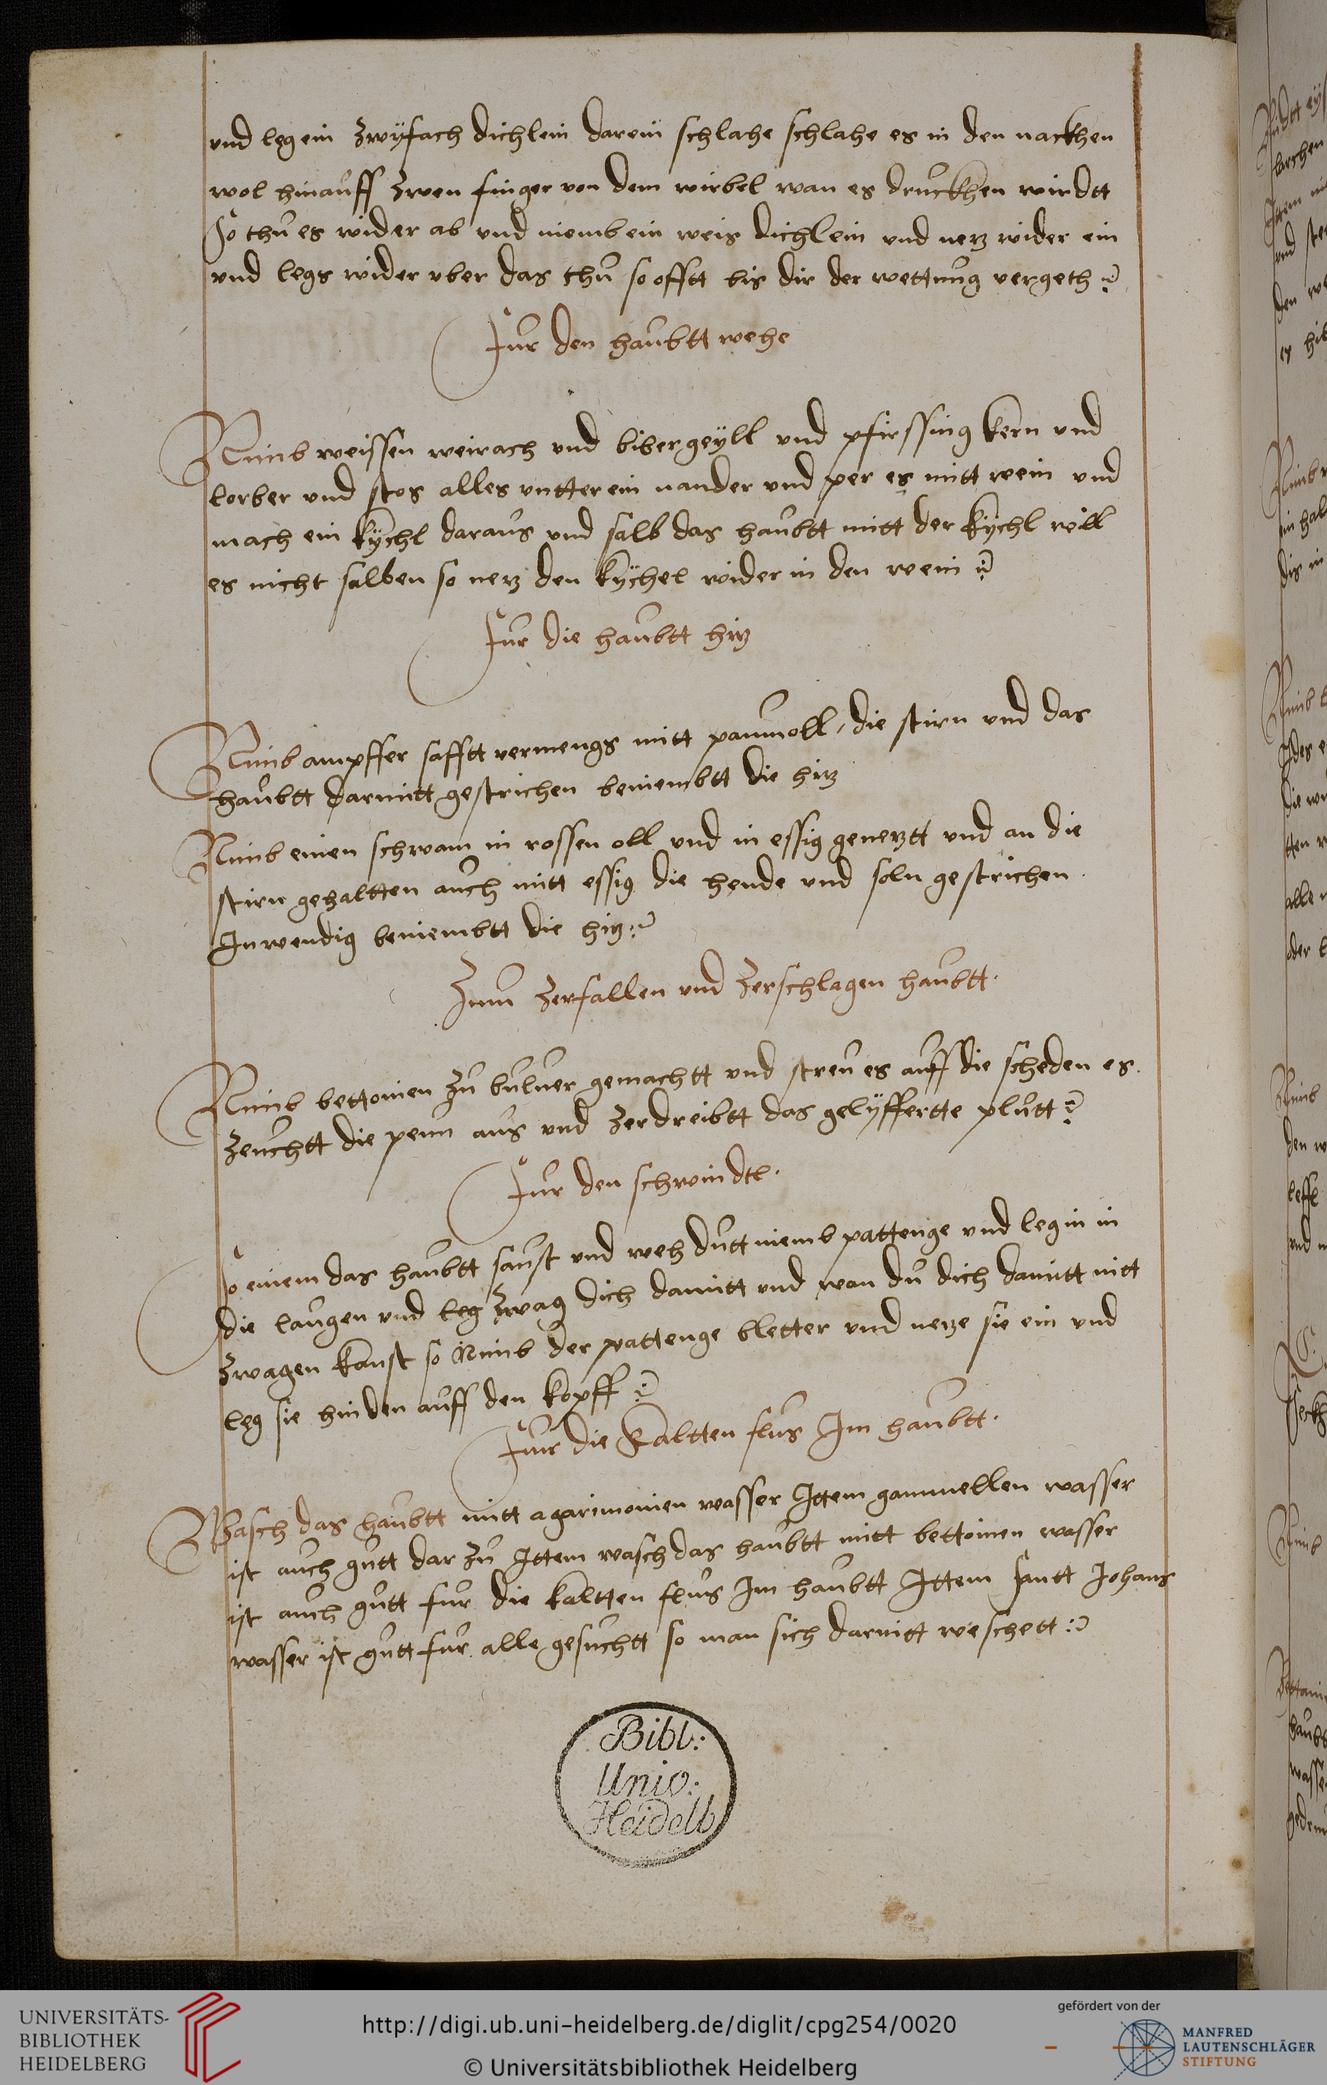 vnd leg ein zwÿfach dichlein darein schlahe schlahe es in den nackhen
wol hinauff zwen finger von dem wirbel wan es druckhen wirdtt
so thu es wider ab vnd niemb ein weis dichlein vnd netz wider ein
vnd legs wider vber das thu so offtt bis dir der wettung vergeth
Fur den haubtt wehe
Nimb weissen weirach vnd bibergeÿll vnd pfirssing kern vnd
lorber vnd stos alles vntter ein nander vnd per es mitt wein vnd
mach ein kÿchl daraus vnd salb das haubtt mitt der kÿchl will
es nicht salben so netz den kÿchel wider in den wein
Fur die haubtt hitz
Nimb ampffer safftt vermengs mitt paumoll, die stirn vnd das
haubtt darmitt gestrichen beniembtt die hitz
Nimb einen schwam in rossen oll vnd in essig genetztt vnd an die
stirn gehaltten auch mitt essig die hende vnd soln gestrichen
Inwendig beniembtt die hitz
Zum zerfallen vnd zerschlagen haubtt
Nimb bettonien zu buluer gemachtt vnd streu es auff die scheden es
zeuchtt die penn aus vnd zerdreibtt das gelÿffertte plutt
Fur den schwindtl
so einem das haubtt saust vnd weh dutt niemb pattenige vnd leg in in
die laugen vnd leg zwag dich damitt vnd wan du dich damitt nitt
zwagen kanst so Nimb der pattenge bletter vnd netze sie ein vnd
leg sie hinden auff den kopff
Fur die kaltten flus Im haubtt
Wasch das haubtt mitt agarimonien wasser Ittem gammellen wasser
ist auch gutt dar zu Ittem wasch das haubtt mitt bettonien wasser
ist auch gutt fur die kaltten flus Im haubtt Ittem santt Johans
wasser ist gutt fur alle gesuchtt so man sich darmitt weschett
Bibl:
Univ:
Heidelb
UNIVERSITÄTS-
BIBLIOTHEK
HEIDELBERG
http://digi.ub.uni-heidelberg.de/diglit/cpg254/0020
© Universitätsbibliothek Heidelberg
gefördert von der
MANFRED
LAUTENSCHLÄGER
STIFTUNG